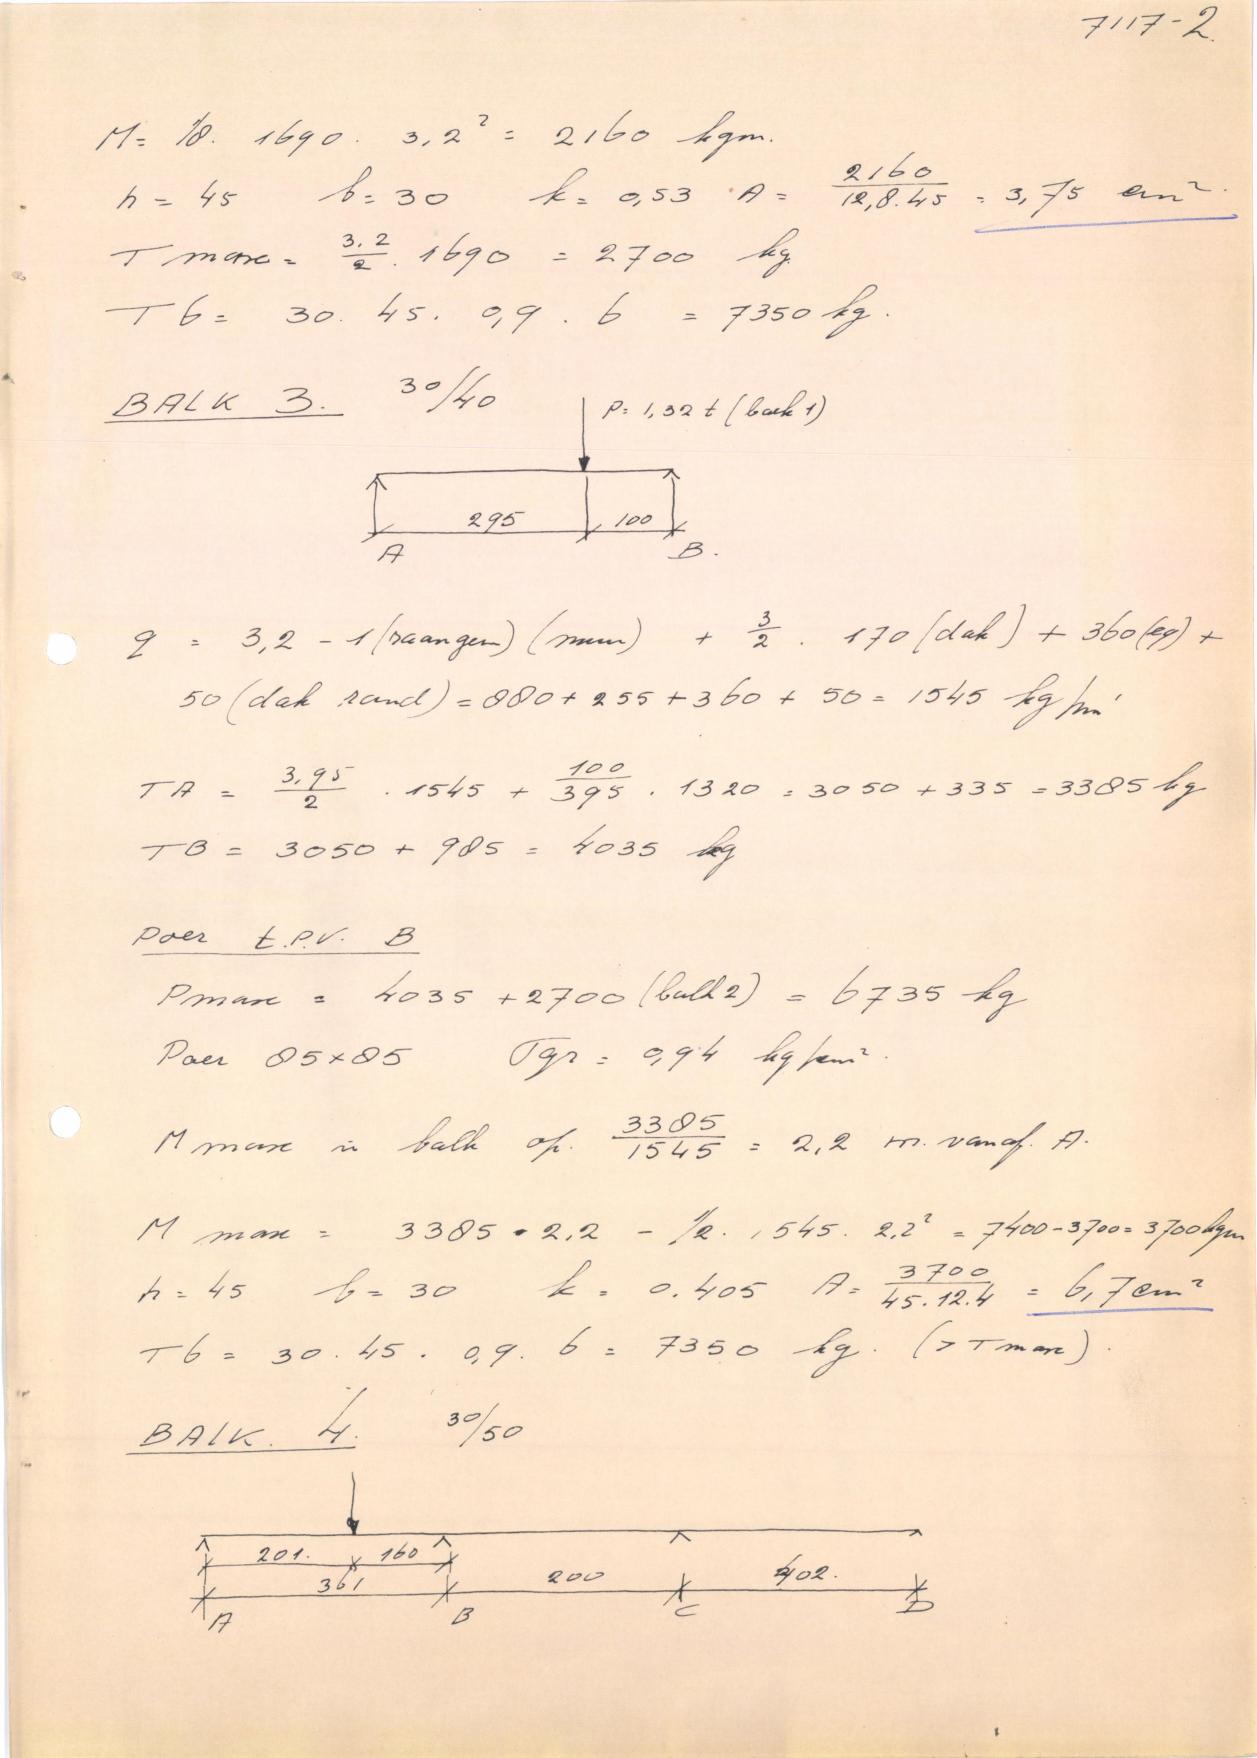 7117-2.
M= 1/8. 1690. 3,2² = 2160 kgm.
h = 45 b= 30 k= 0,53 A = 2160/12,8.45 = 3,75 cm²
T max = 3.2/2 . 1690 = 2700 kg.
T b = 30. 45. 0,9 . 6 = 7350 kg.
BALK 3. 30/40
P= 1,32 t (balk 1)
295 100
A B.
q = 3,2 - 1 (raamgem) (muur) + 3/2 . 170 (dak) + 360 (eg) +
50 (dak rand) = 880 + 255 + 360 + 50 = 1545 kg/m'
TA = 3,95/2 . 1545 + 100/395 . 1320 = 3050 + 335 = 3385 kg
TB = 3050 + 985 = 4035 kg
Poer t.p.v. B
Pmax = 4035 + 2700 (balk 2) = 6735 kg
Poer 85 x 85 σgr = 0,94 kg/cm².
M max in balk op. 3385/1545 = 2,2 m. vanaf. A.
M max = 3385 . 2,2 - 1/2. 1545. 2,2² = 7400 - 3700 = 3700 kgm
h = 45 b = 30 k = 0.405 A= 3700/45.12.4 = 6,7 cm²
T b = 30. 45. 0,9. 6 = 7350 kg. (> T max).
BALK. 4. 30/50
201. 160
361 200 402.
A B C D